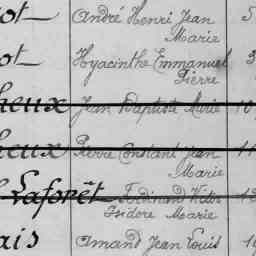 ot André Henri Jean 5
Marie
ot Hyacinthe Emmanuel
Pierre
heux Jean Baptiste Marie
heux Pierre Constant Jean 11
Marie
Laforêt Ferdinand Victor
Isidore Marie
ais Amand Jean Louis